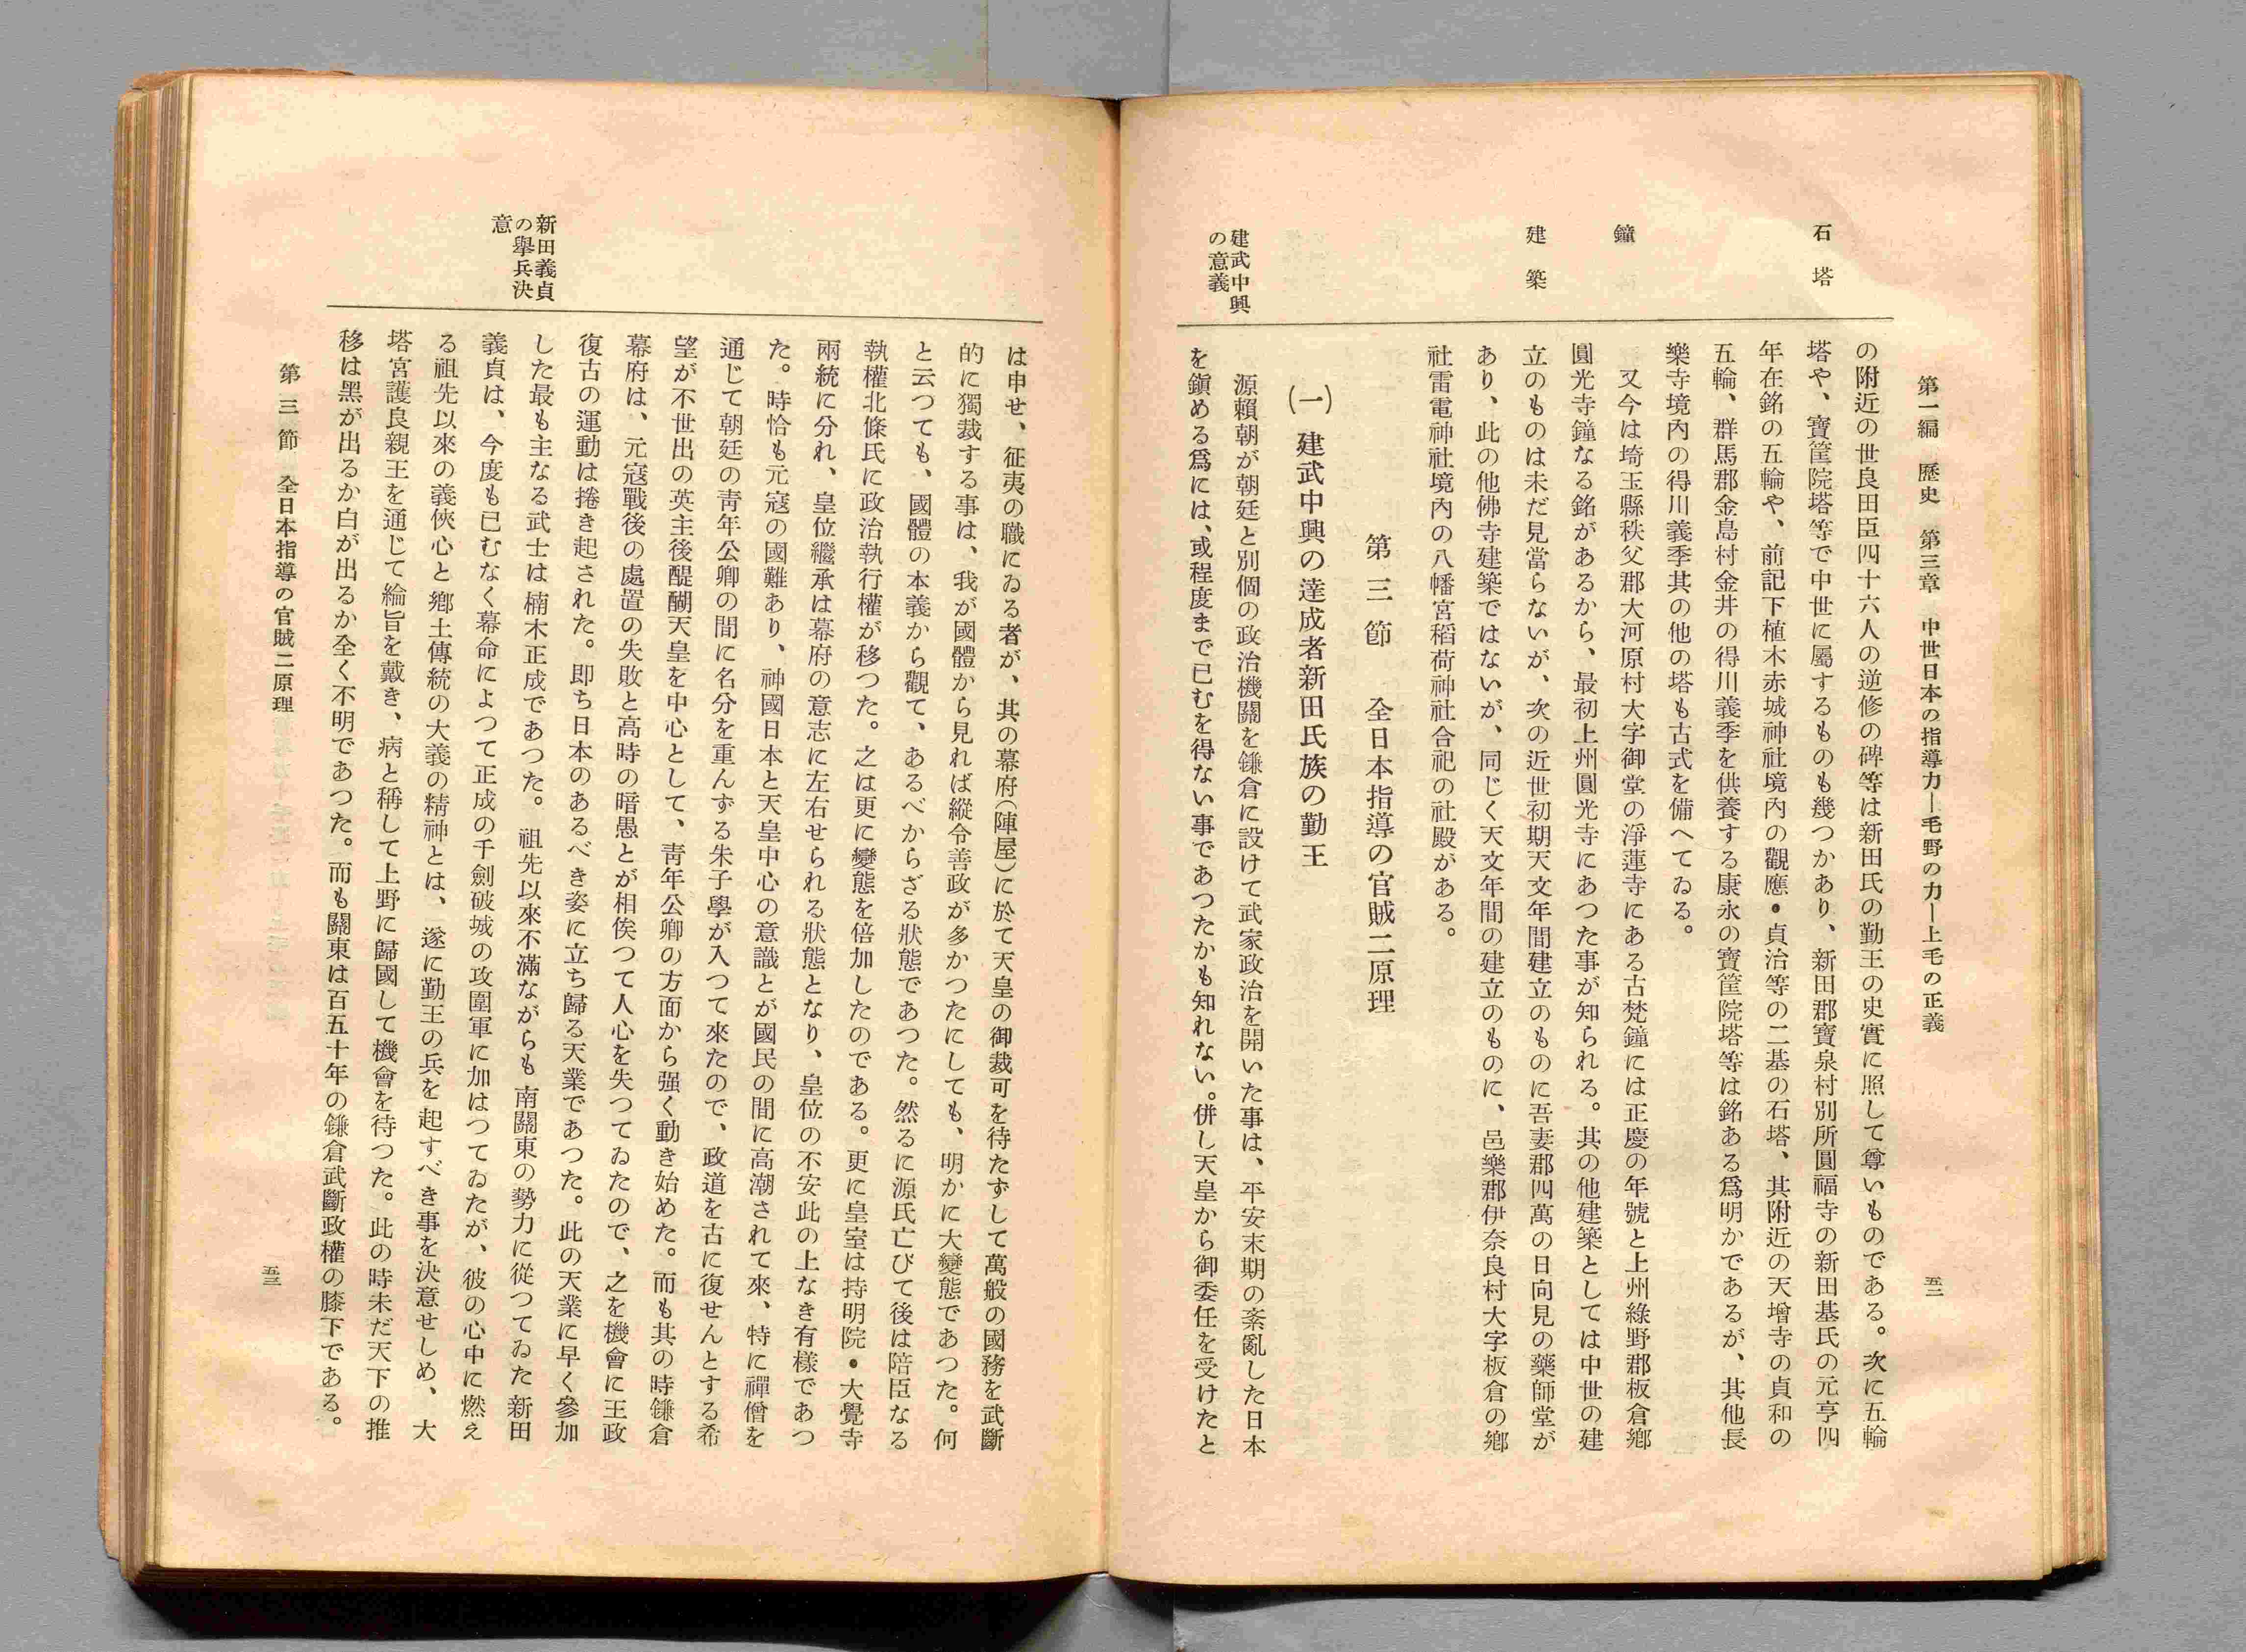 第一編　歷史　第三章　中世日本の指導力―毛野の力―上毛の正義
五二
石塔
鐘
建築
建武中興
の意義
の附近の世良田臣四十六人の逆修の碑等は新田氏の勤王の史實に照して尊いものである。次に五輪
塔や、寶筐院塔等で中世に屬するものも幾つかあり、新田郡寶泉村別所圓福寺の新田基氏の元亨四
年在銘の五輪や、前記下植木赤城神社境內の觀應・貞治等の二基の石塔、其附近の天增寺の貞和の
五輪、群馬郡金島村金井の得川義季を供養する康永の寶筐院塔等は銘ある爲明かであるが、其他長
樂寺境內の得川義季其の他の塔も古式を備へてゐる。
又今は埼玉縣秩父郡大河原村大字御堂の淨蓮寺にある古梵鐘には正慶の年號と上州綠野郡板倉鄉
圓光寺鐘なる銘があるから、最初上州圓光寺にあつた事が知られる。其の他建築としては中世の建
立のものは未だ見當らないが、次の近世初期天文年間建立のものに吾妻郡四萬の日向見の藥師堂が
あり、此の他佛寺建築ではないが、同じく天文年間の建立のものに、邑樂郡伊奈良村大字板倉の鄉
社雷電神社境內の八幡宮稻荷神社合祀の社殿がある。
第三節　全日本指導の官賊二原理
(一)　建武中興の達成者新田氏族の勤王
源賴朝が朝廷と別個の政治機關を鎌倉に設けて武家政治を開いた事は、平安末期の紊亂した日本
を鎭める爲には、或程度まで已むを得ない事であつたかも知れない。併し天皇から御委任を受けたと
新田義貞
の擧兵決
意
は申せ、征夷の職にゐる者が、其の幕府(陣屋)に於て天皇の御裁可を待たずして萬般の國務を武斷
的に獨裁する事は、我が國體から見れば縱令善政が多かつたにしても、明かに大變態であつた。何
と云つても、國體の本義から觀て、あるべからざる狀態であつた。然るに源氏亡びて後は陪臣なる
執權北條氏に政治執行權が移つた。之は更に變態を倍加したのである。更に皇室は持明院・大覺寺
兩統に分れ、皇位繼承は幕府の意志に左右せられる狀態となり、皇位の不安此の上なき有樣であつ
た。時恰も元寇の國難あり、神國日本と天皇中心の意識とが國民の間に高潮されて來、特に禪僧を
通じて朝廷の靑年公卿の間に名分を重んずる朱子學が入つて來たので、政道を古に復せんとする希
望が不世出の英主後醍醐天皇を中心として、靑年公卿の方面から强く動き始めた。而も其の時鎌倉
幕府は、元寇戰後の處置の失敗と高時の暗愚とが相俟つて人心を失つてゐたので、之を機會に王政
復古の運動は捲き起された。卽ち日本のあるべき姿に立ち歸る天業であつた。此の天業に早く參加
した最も主なる武士は楠木正成であつた。祖先以來不滿ながらも南關東の勢力に從つてゐた新田
義貞は、今度も已むなく幕命によつて正成の千劍破城の攻圍軍に加はつてゐたが、彼の心中に燃え
る祖先以來の義俠心と鄉土傳統の大義の精神とは、遂に勤王の兵を起すべき事を決意せしめ、大
塔宮護良親王を通じて綸旨を戴き、病と稱して上野に歸國して機會を待つた。此の時未だ天下の推
移は黑が出るか白が出るか全く不明であつた。而も關東は百五十年の鎌倉武斷政權の膝下である。
第三節　全日本指導の官賊二原理
五三